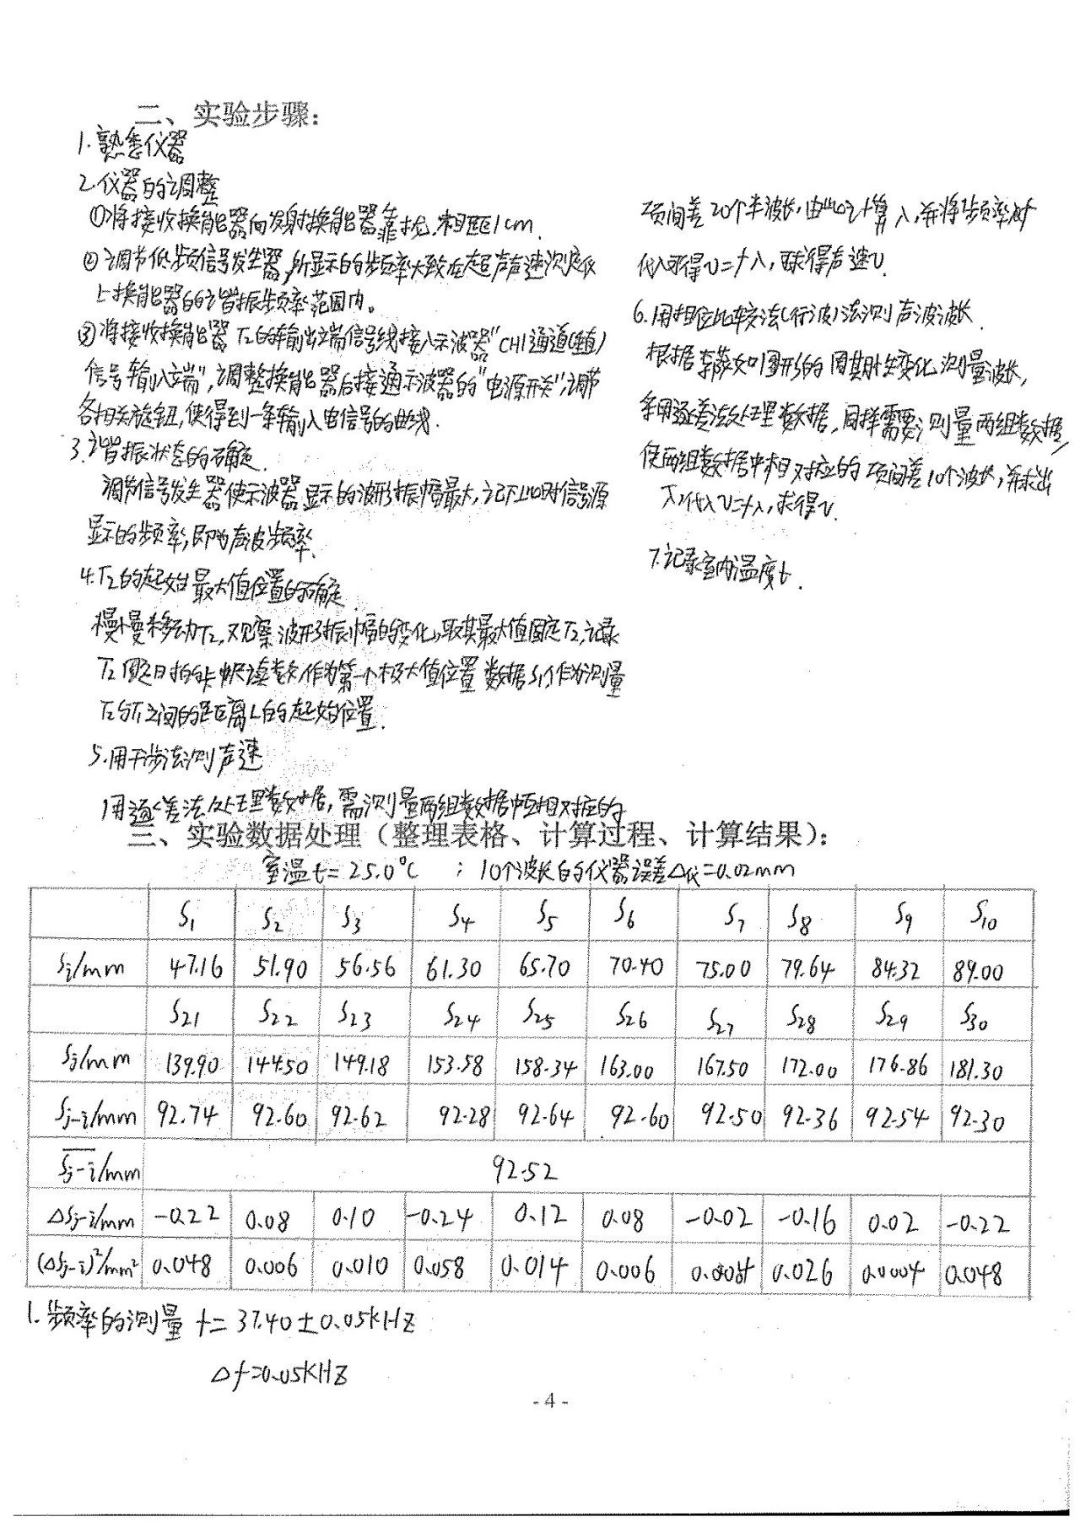 二、实验步骤：
1.熟悉仪器
2.仪器的调整
①将接收换能器向发射换能器靠拢,相距1cm.
②调节低频信号发生器,所显示的频率大致在超声声速测定仪
上换能器的谐振频率范围内。
③将接收换能器T2的输出端信号线接入示波器"CH1通道(垂直)
信号输入端",调整换能器后接通示波器的"电源开关",调节
各相关旋钮,使得到一条输入电信号的曲线.
3.谐振状态的确定.
调节信号发生器使示波器显示的波形振幅最大,记下此时信号源
显示的频率,即为声波频率.
4.T2的起始最大值位置的确定
慢慢移动T2,观察波形振幅的变化,取其最大值固定T2,记录
T2 卡帜读数作为第一个极大值位置数据S1作为测量
T2与T1之间的距离L的起始位置.
5.用干涉法测声速
用逐差法处理数据,需测量两组数据中互相对应的
项间差20个半波长,由此计算λ,并将频率对
代入可得υ=fλ,求得声速υ.
6.用相位比较法(行波)法测声波波长.
根据李萨如图形的周期性变化测量波长,
采用逐差法处理数据,同样需要测量两组数据,
使两组数据中相对应的项间差10个波长,并求出
λ代入υ=fλ,求得υ.
7.记录室内温度t.
三、实验数据处理（整理表格、计算过程、计算结果）：
室温t=25.0°C ; 10个波长的仪器误差Δ仪=0.02mm
S1 S2 S3 S4 S5 S6 S7 S8 S9 S10
Si/mm 47.16 51.90 56.56 61.30 65.70 70.40 75.00 79.64 84.32 89.00
S21 S22 S23 S24 S25 S26 S27 S28 S29 S30
Sj/mm 139.90 144.50 149.18 153.58 158.34 163.00 167.50 172.00 176.86 181.30
Sj-i/mm 92.74 92.60 92.62 92.28 92.64 92.60 92.50 92.36 92.54 92.30
Sj-i/mm 92.52
ΔSj-i/mm -0.22 0.08 0.10 -0.24 0.12 0.08 -0.02 -0.16 0.02 -0.22
(ΔSj-i)²/mm² 0.048 0.006 0.010 0.058 0.014 0.006 0.026 0.0004 0.048
1.频率的测量 f=37.40±0.05kHz
Δf=0.05kHz
- 4 -